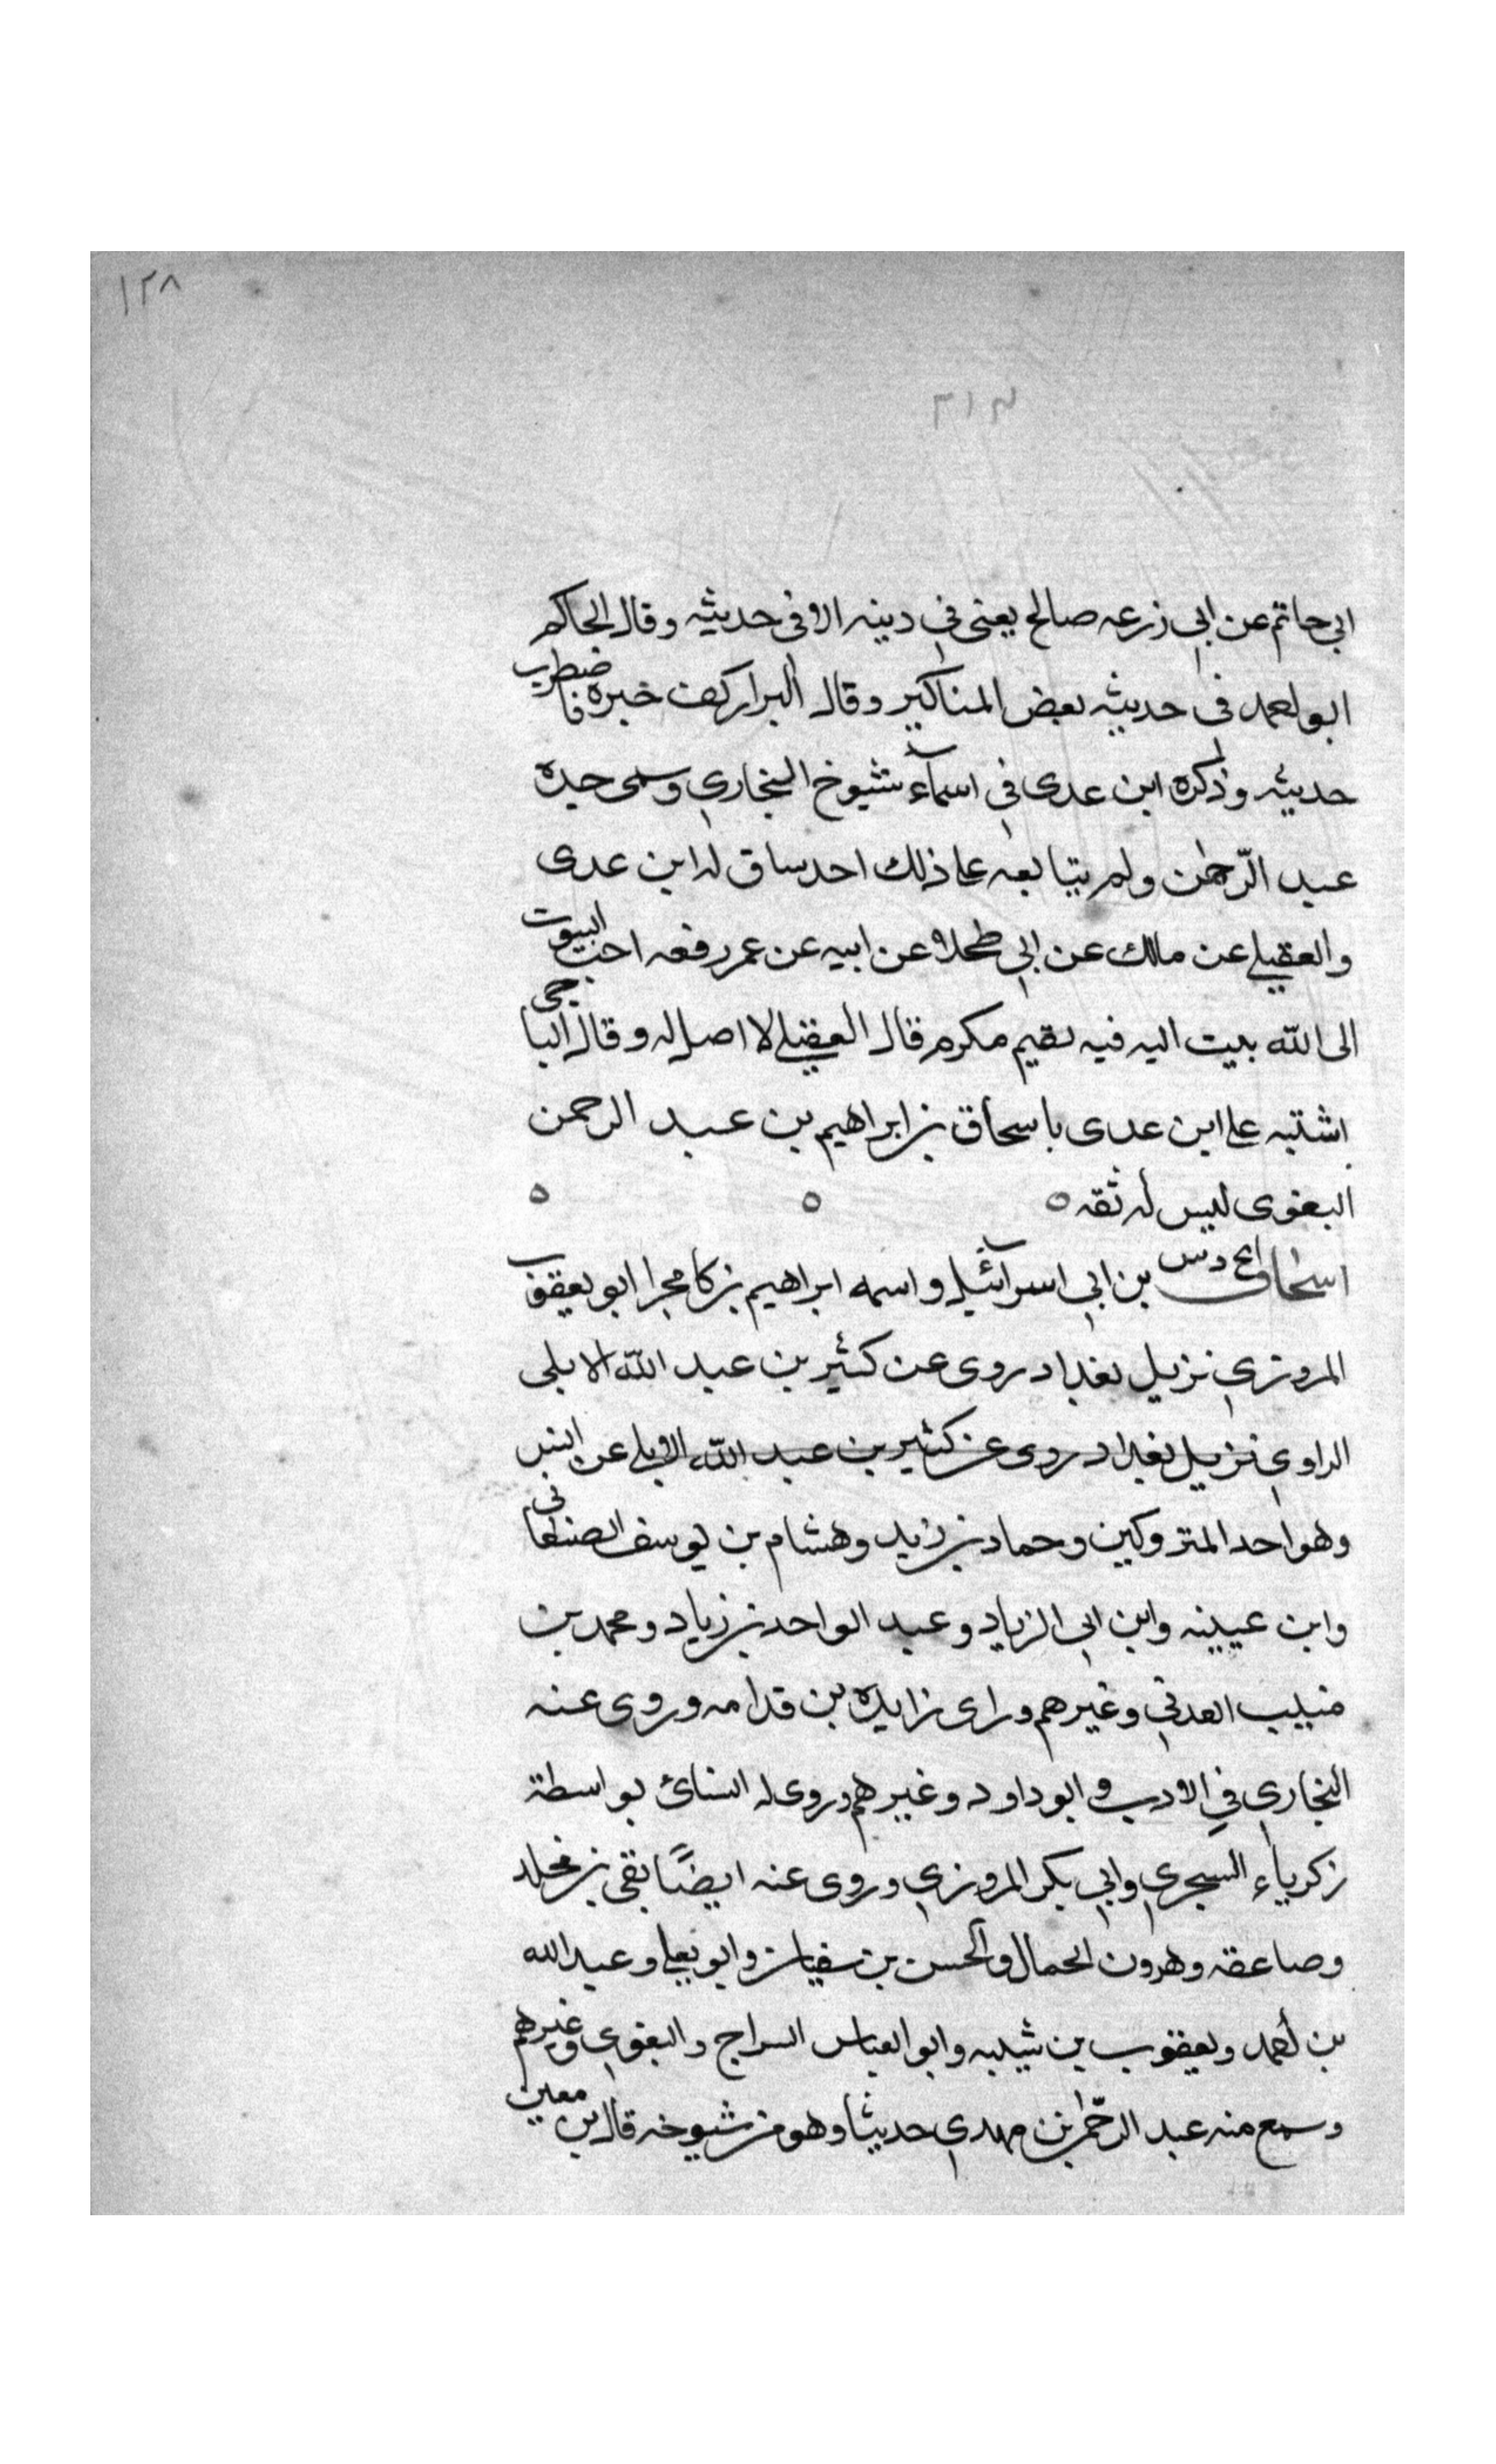 ١٢٨
٣١٢
ابي حاتم عن ابي زرعه صالح يعنى في دينه الا فى حديثه وقال الحاكم
ابو احمد فى حديثه بعض المناكير وقال البزار كف خبره فاضطرب
حديثه وذكره ابن عدى في اسمآء شيوخ البخاري وسمى جده
عبد الرّحمٰن ولم يتابعه على ذلك احد ساق له ابن عدى
والعقيلي عن مالك عن ابي طحلاء عن ابيه عن عمر رفعه احب البيوت
الى الله بيت اليه فيه يتيم مكرم قال العقيلي لا اصل له وقال الباجى
اشتبه على ابن عدى باسحاق بن ابراهيم بن عبد الرحمن
البغوى ليس له ثقه ٥ ٥ ٥
اسحاق بخ د س بن ابي اسرآئيل واسمه ابراهيم بن كامجرا ابو يعقوب
المروزي نزيل بغداد روى عن كثير بن عبد الله الابلى
الراوي نزيل بغداد روى عن كثير بن عبد الله الابلي عن انس
وهو احد المتروكين وحماد بن زيد وهشام بن يوسف الصنعانى
وابن عيينه وابن ابي الزياد وعبد الواحد بن زياد ومحمد بن
منيب العدني وغيرهم وراى زايده بن قدامه وروى عنه
البخاري في الادب وابو داود وغيرهم وروى له النسائ بواسطة
زكرياء السجري وابي بكر المروزي وروى عنه ايضًا بقى بن مخلد
وصاعقه وهرون الحمال والحسن بن سفيان وابو يعلى وعبد الله
بن احمد ويعقوب بن شيبه وابو العباس السراج والبغوي وغيرهم
وسمع منه عبد الرّحمٰن بن مهدي حديثا وهو من شيوخه قال بن معين